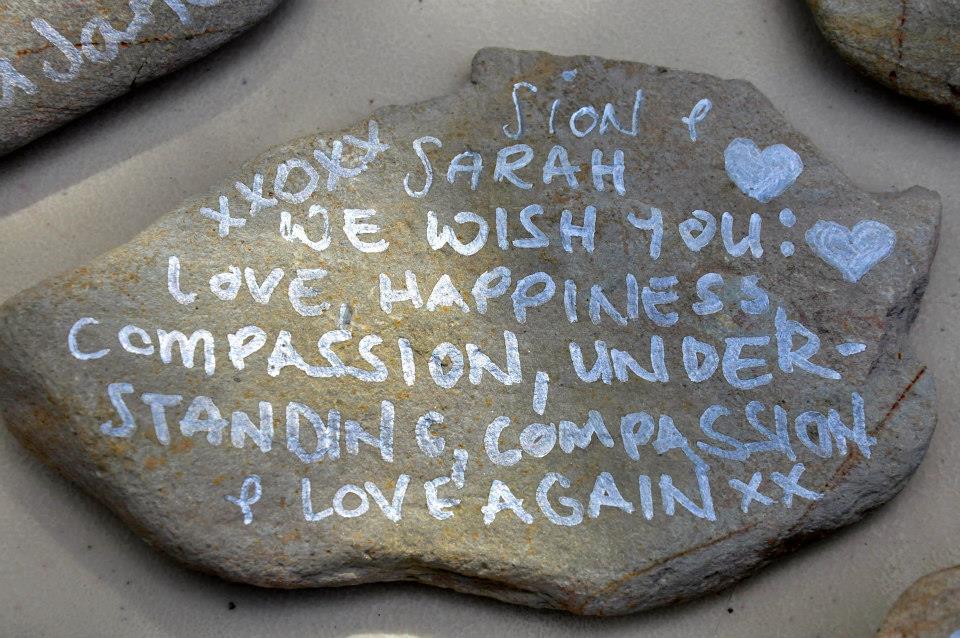 SiON &
SARAH
xxoxx
WE WISH YOU:
LOVE, HAPPINESS,
COMPASSION, UNDER-
STANDING, COMPASSION
& LOVE AGAIN xx